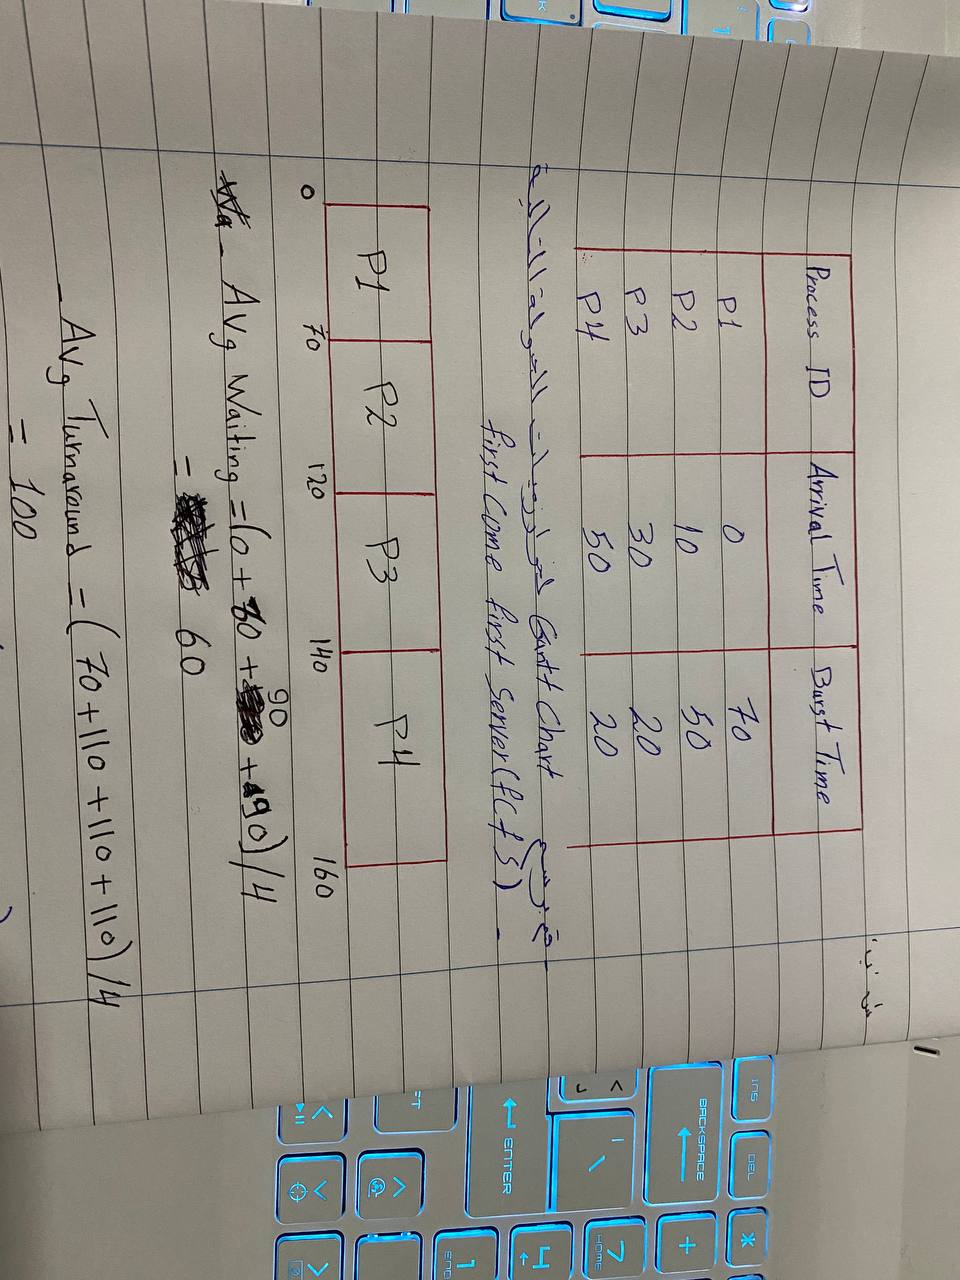 س ب.
Process ID Arrival Time Burst Time
P1 0 70
P2 10 50
P3 30 20
P4 50 20
قم برسم Gantt Chart لخوارزميات الجدولة التالية
first Come first Server (fCfS)
P1 P2 P3 P4
0 70 120 140 160
90
- Avg Waiting = (0 + 60 + + 90) / 4
= 60
- Avg Turnaround = (70 + 110 + 110 + 110) / 4
= 100
INS DEL *
BACKSPACE +
7
HOME
4
ENTER
1
END